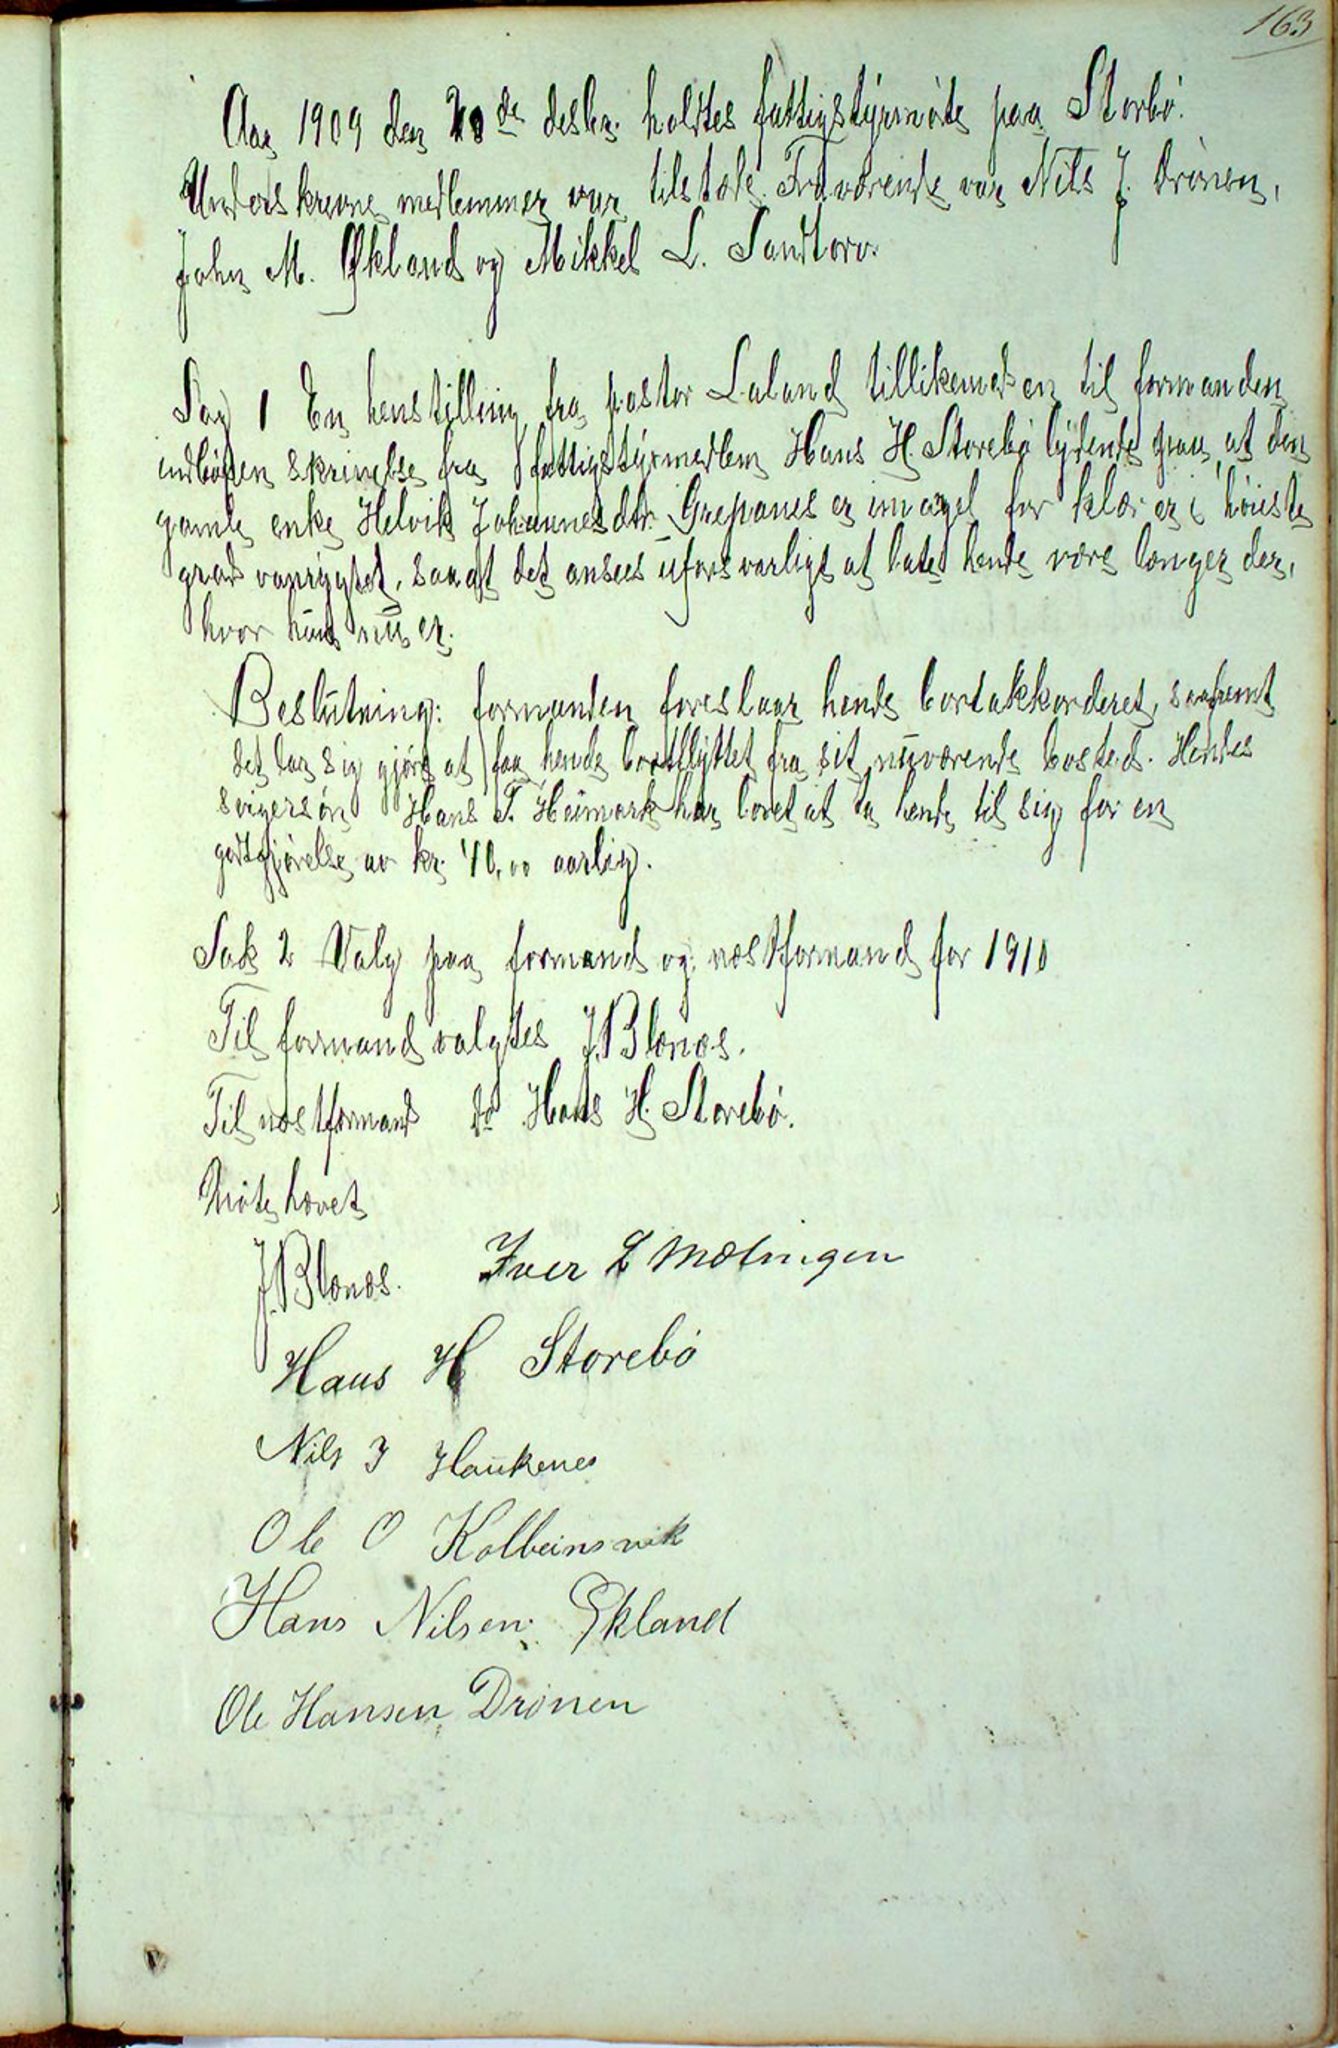 163
Aar 1909 den 20de desbr. holdtes fattigstyrmøte paa Storbø.
Underskrevne medlemmer var tilstæde. Fraværende var Nils J. Drönen,
John M. Økland og Mikkel L. Sandtorv.
Sag 1 En henstilling fra pastor Laland tillikemed en til formanden
indløpen skrivelse fra fattigstyrmedlem Hans H. Storebø lydende paa, at den
gamle enke Helvik Johannesdtr. Grepanes er i mangel for klær er i høieste
grad vanrygtet, saa at det ansees uforsvarligt at late hende være længer der,
hvor hun nu er.
Beslutning: formanden foreslaar hende bortakkorderet, saafremt
det lar sig gjøre at faa hende bortflyttet fra sit nuværende bosted. Hendes
svigersøn Hans T. Heimark har lovet at ta hende til sig for en
godtgjørelse av kr. 40,00 aarlig.
Sak 2 Valg paa formand og næstformand for 1910
Til formand valgtes J. Blænæs.
Til næstformand do Hans H. Storebø.
Møte hævet
J. Blænæs. Iver L Mælingen
Hans H Storebø
Nils J Haukenes
Ole O Kolbeinsvik
Hans Nilsen Økland
Ole Hansen Drönen